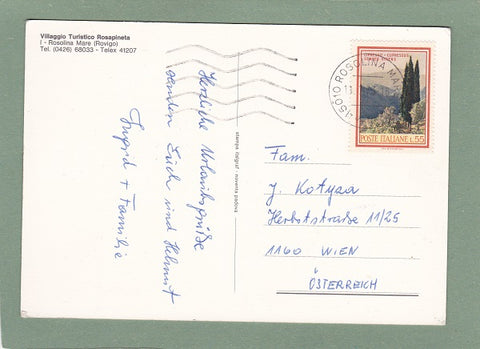 Villaggio Turistico Rosapineta
I - Rosolina Mare (Rovigo)
Tel. (0426) 68033 - Telex 41207
Herzliche Urlaubsgrüße
senden Euch und Helmut
Ingrid + Familie
CIPRESSO - CUPRESSUS
POSTE ITALIANE L.55
45010 ROSOLINA MA
Fam.
J. Kotyza
Herbststraße 11/25
1160 WIEN
ÖSTERREICH